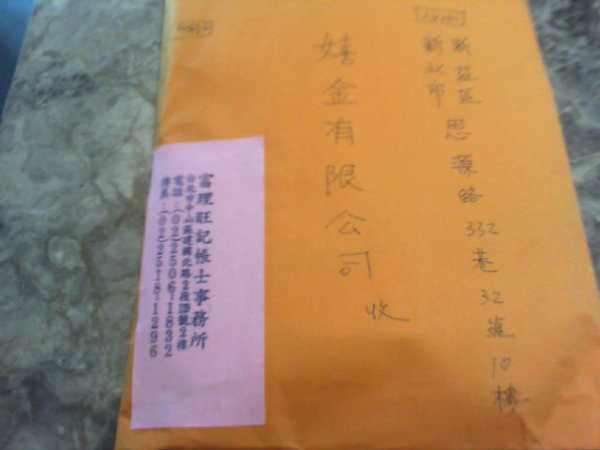 新北市
新莊區思源路332巷32號10樓
嬉金有限公司 收
富理旺記帳士事務所
台北市中山區建國北路2段 號2樓
電話:(02)2506-1832
傳真:(02)2518-1296